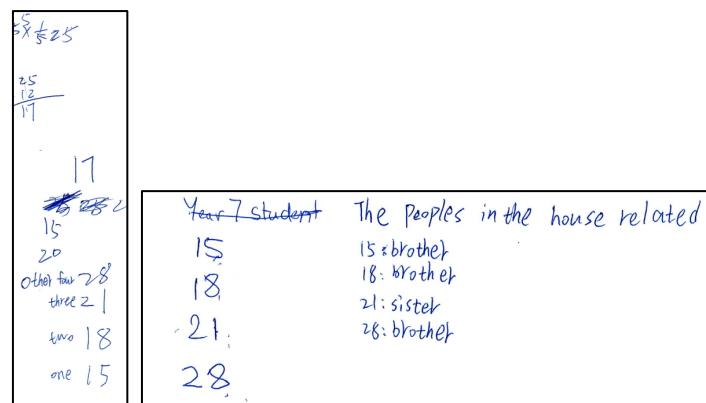 25
25
12
17
17
15
20
other four 28
three 21
two 18
one 15
Year 7 student The peoples in the house related
15 15: brother
18 18: brother
21 21: sister
28 28: brother